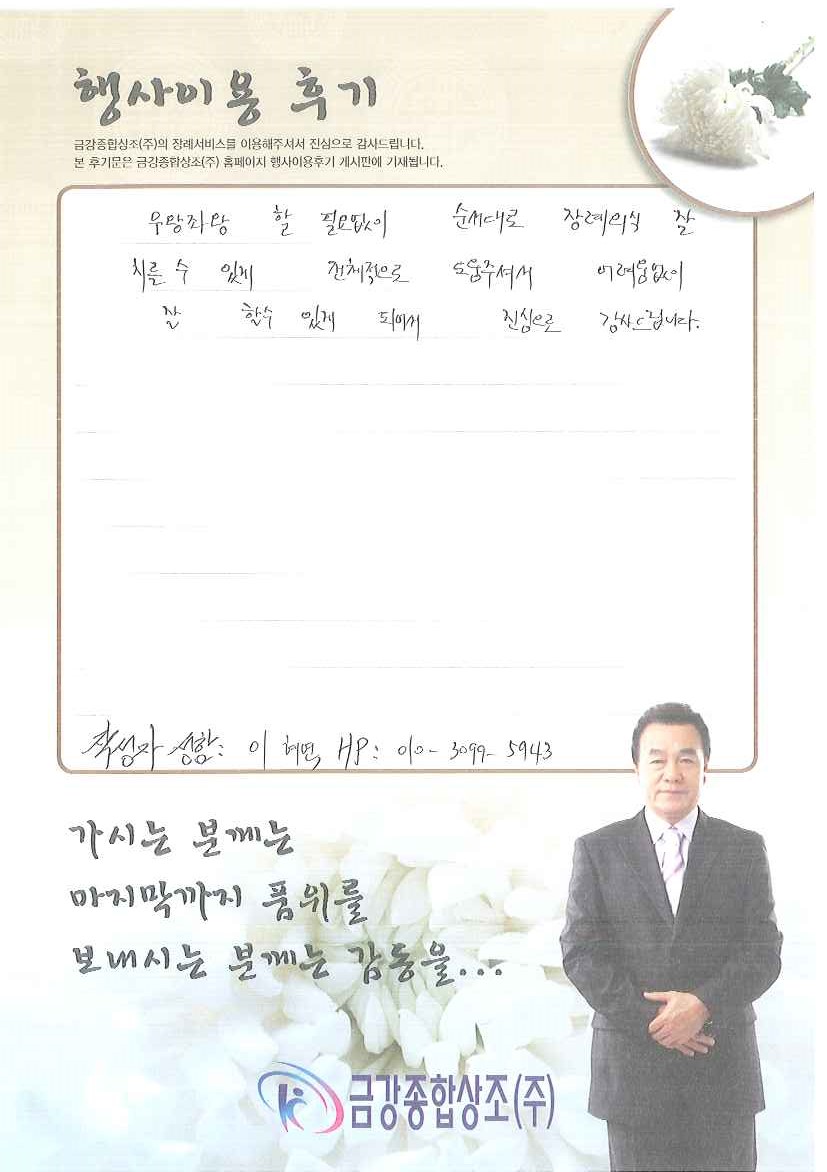 행사이용 후기
금강종합상조(주)의 장례서비스를 이용해주셔서 진심으로 감사드립니다.
본 후기문은 금강종합상조(주) 홈페이지 행사이용후기 게시판에 기재됩니다.
우왕좌왕 할 필요없이 순서대로 장례의식 잘
치를 수 있게 전체적으로 도움주셔서 어려움없이
잘 할수 있게 되어서 진심으로 감사드립니다.
작성자 성함: 이 HP: 010-3099-5943
가시는 분께는
마지막까지 품위를
보내시는 분께는 감동을...
금강종합상조(주)